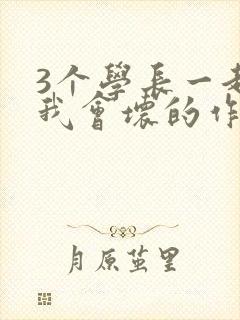 3个學長一起
我會壞的作
月原茧里